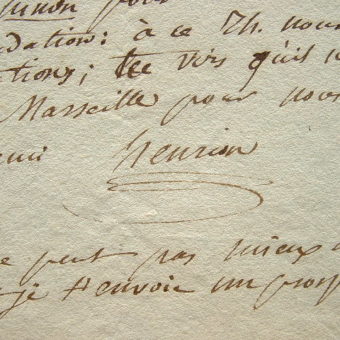 pour
dation: à ce Th. nous
tions; vers qu'il
Marseille pour nous
Henrion
e peut pas mieux
je t'envoie un prosp